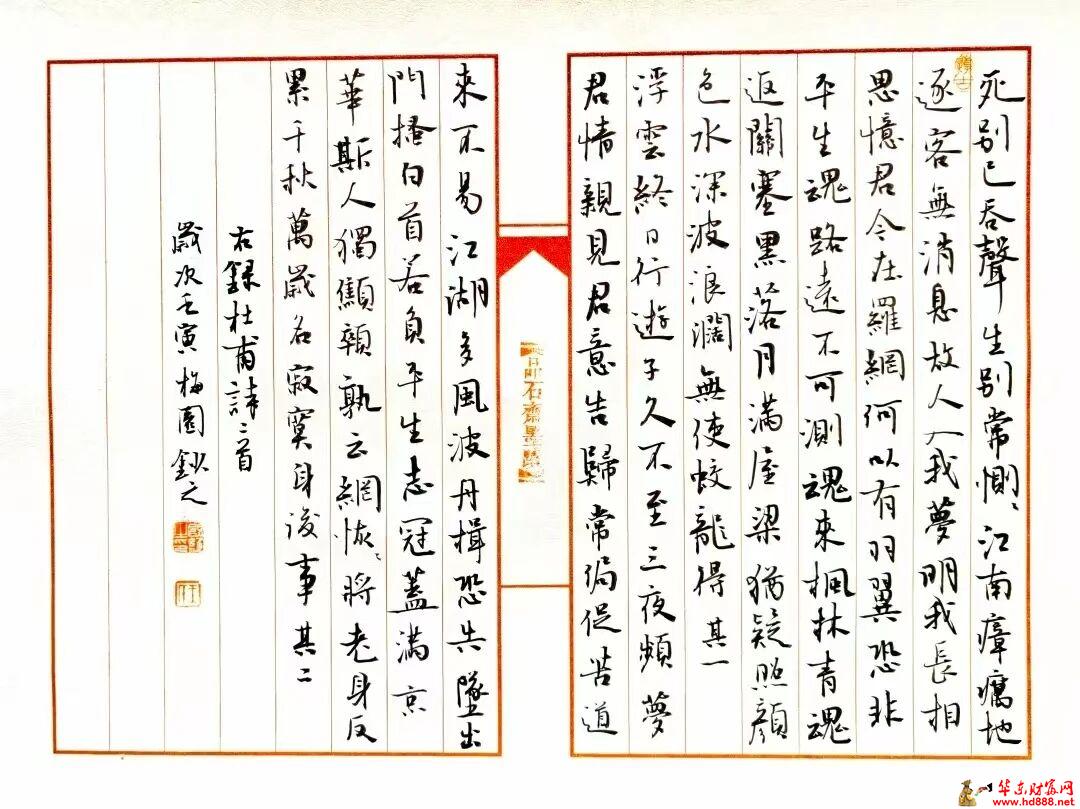 死别已吞聲生别常惻〻江南瘴癘地
逐客無消息故人入我夢明我長相
思憶君今在羅網何以有羽翼恐非
平生魂路遠不可測魂來楓林青魂
返關塞黑落月滿屋梁猶疑照顏
色水深波浪濶無使蛟龍得 其一
浮雲終日行遊子久不至三夜頻夢
君情親見君意告歸常侷促苦道
來不易江湖多風波舟楫恐失墜出
門搔白首若負平生志冠蓋滿京
華斯人獨顦顇孰云網恢〻將老身反
累千秋萬歲名寂寞身後事 其二
右録杜甫詩二首
歲次壬寅梅園鈔之
石齋墨
华东财富网
www.hd888.net